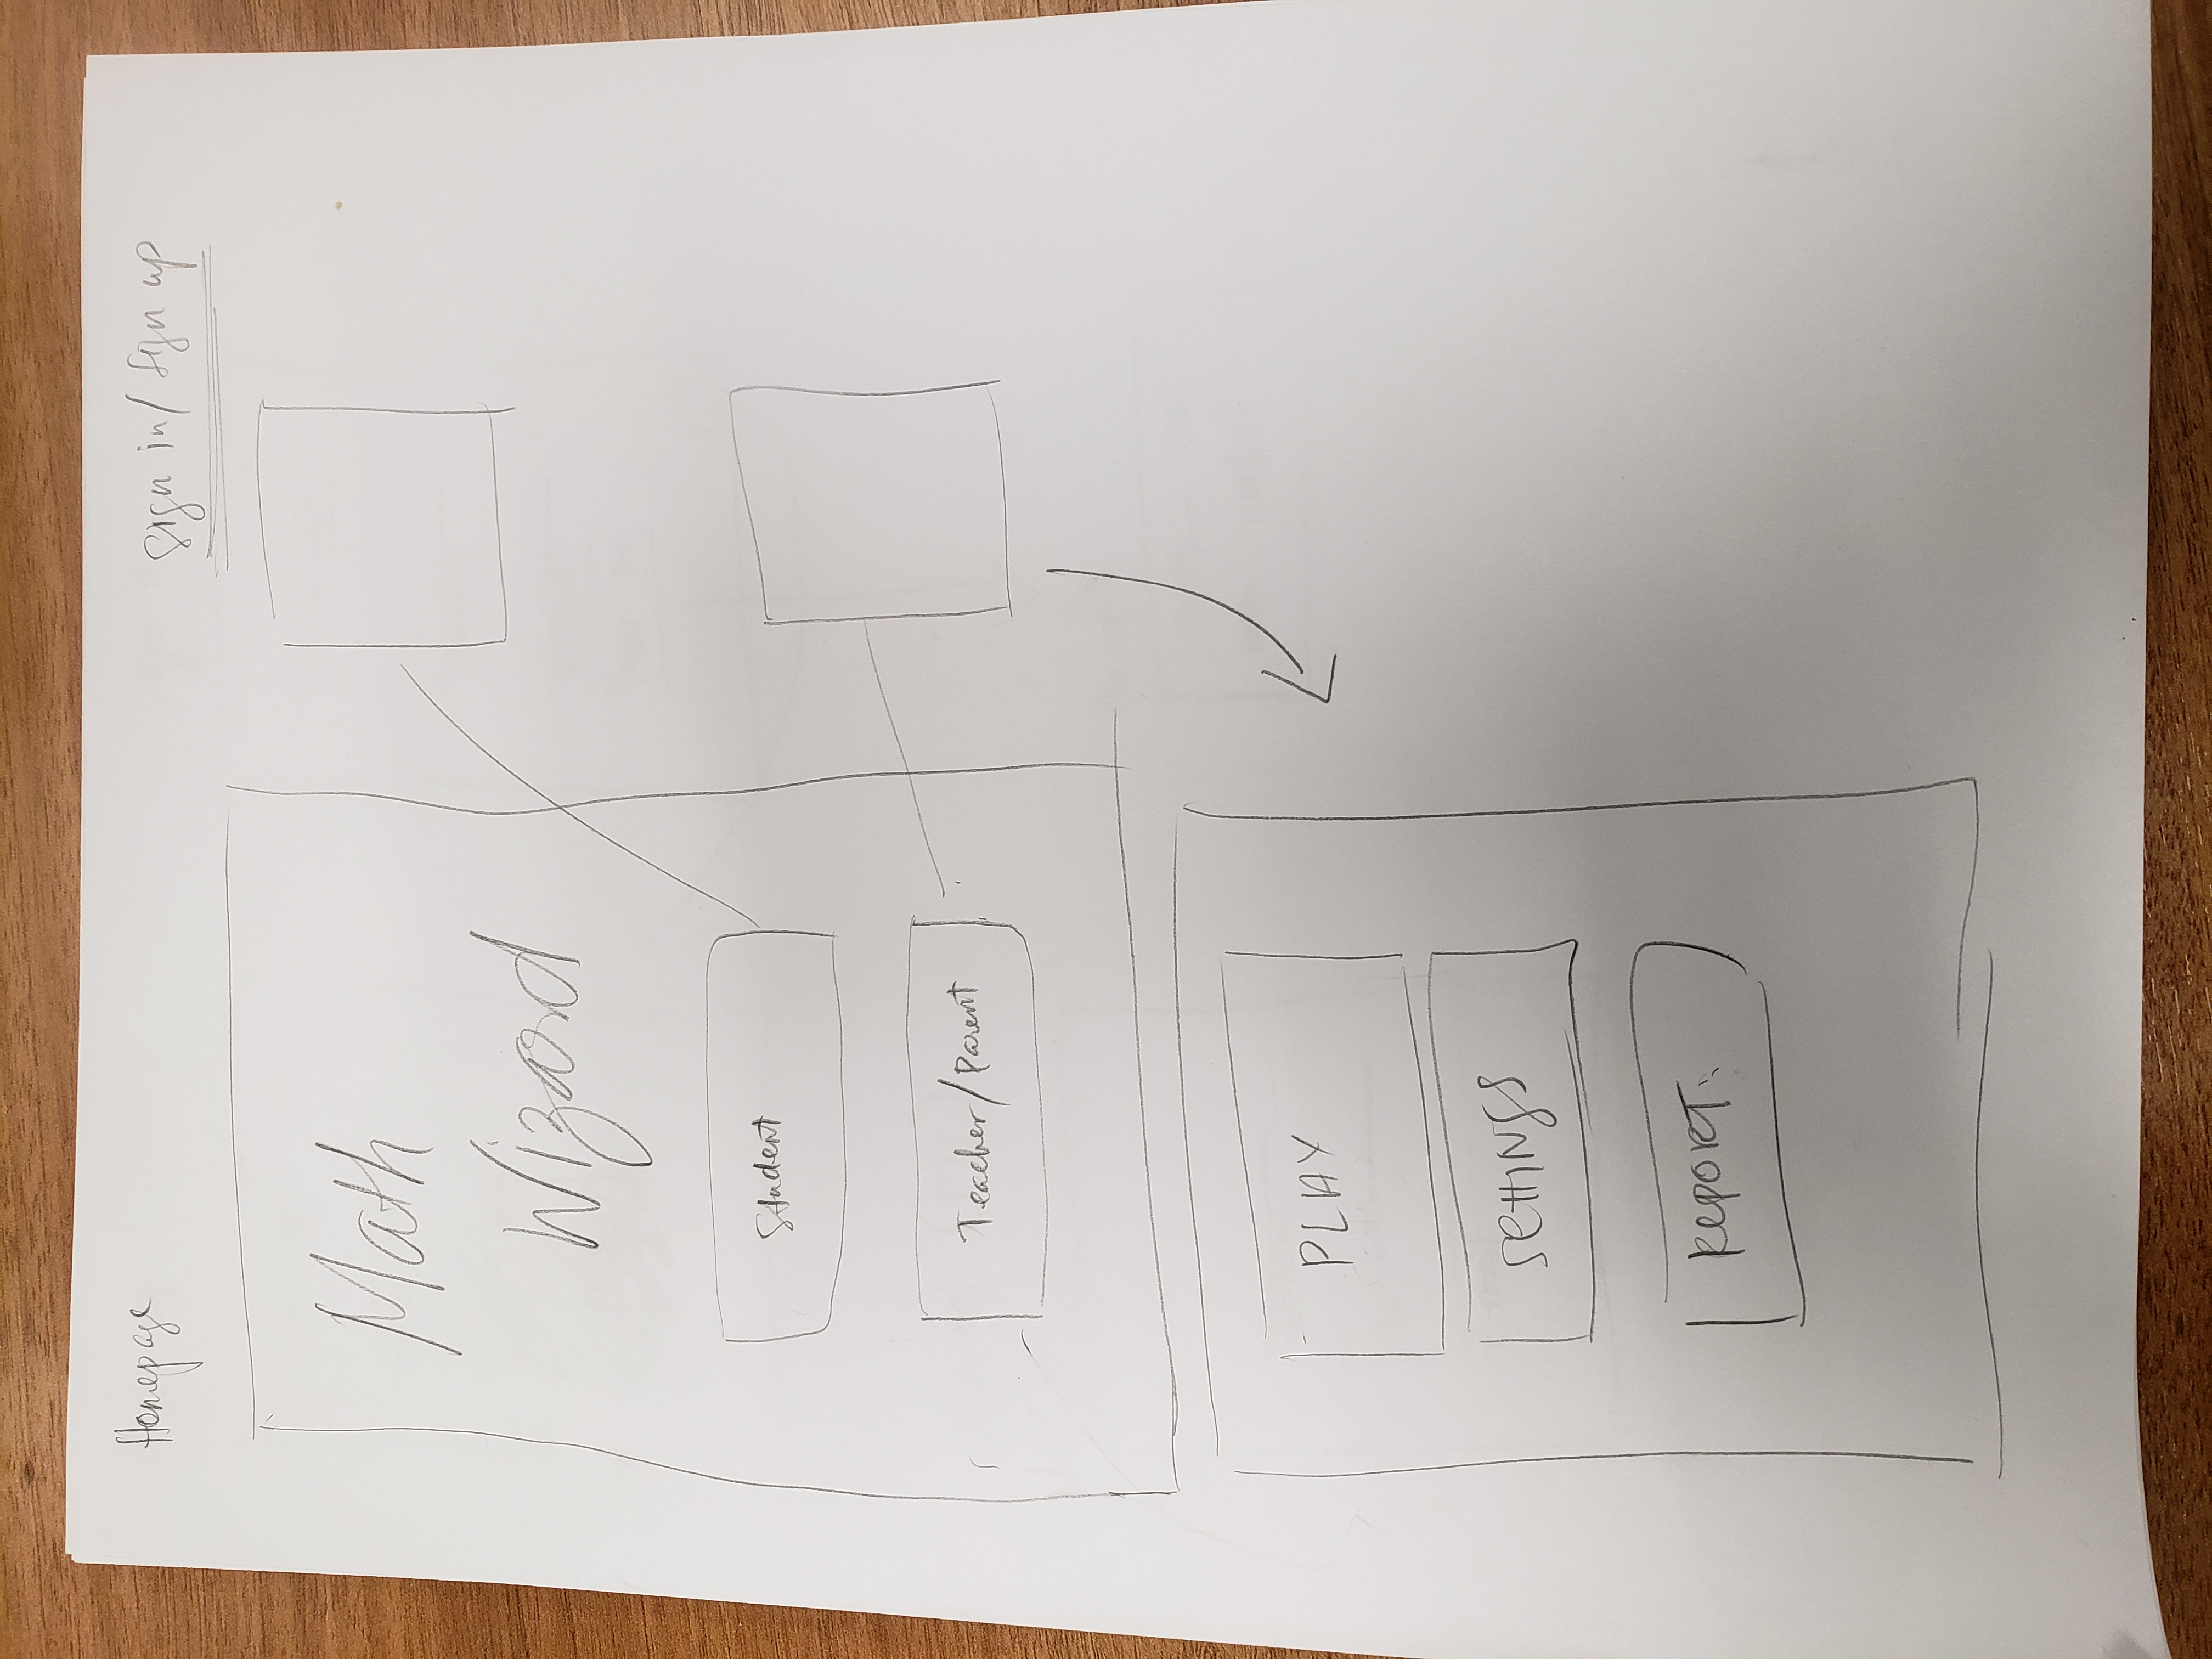 Homepage
Sign in/ Sign up
Math
Wizard
Student
Teacher/Parent
PLAY
SETTINGS
REPORT